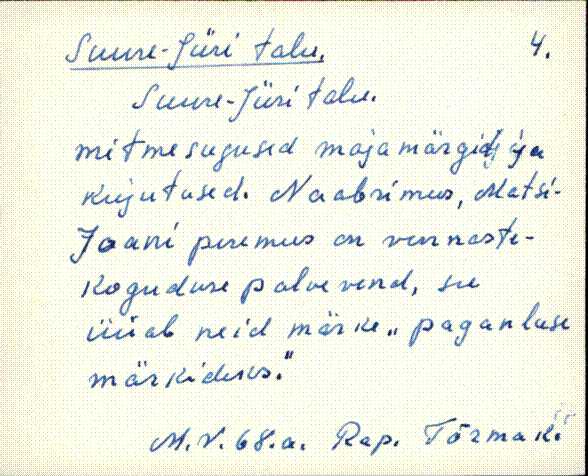 Suure-Jüri talu. 4.
Suure-Jüri talu.
mitmesugused majamärgid ja
kujutused. Naabrimees, Matsi-
Jaani peremees on vennaste-
koguduse palvevend, see
üüab neid märke "paganluse
märkideks."
M.V. 68.a. Rap. Tõrmak.